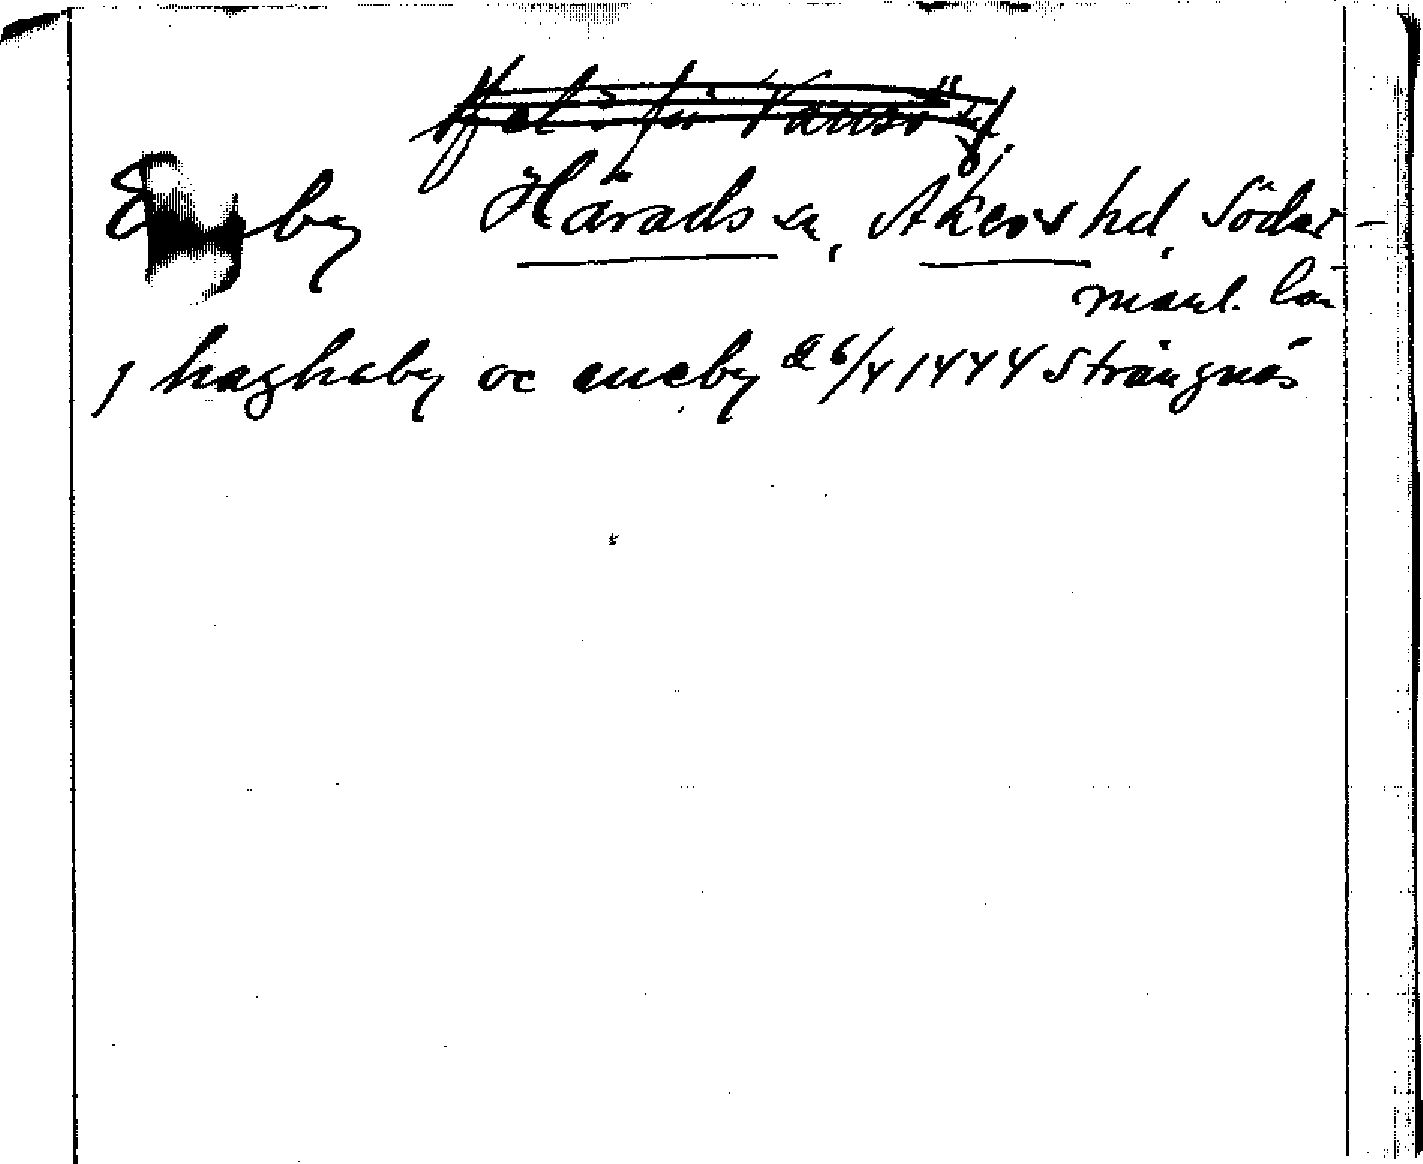 Härads sn, Åkers hd, Söder-
manl. län
j haghaby oc eneby 26/4 1444 Strängnäs